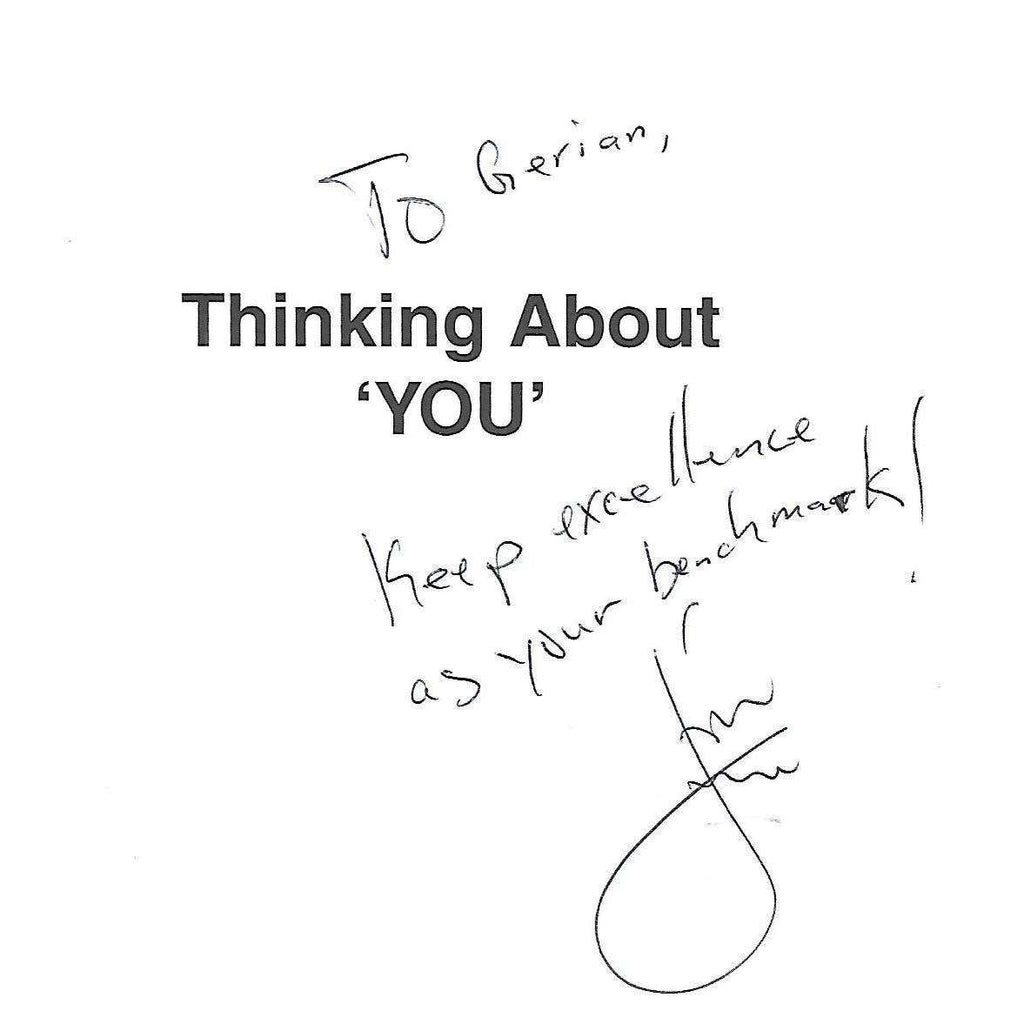 To Gerian,
Thinking About
‘YOU’
Keep excellence
as your benchmark!